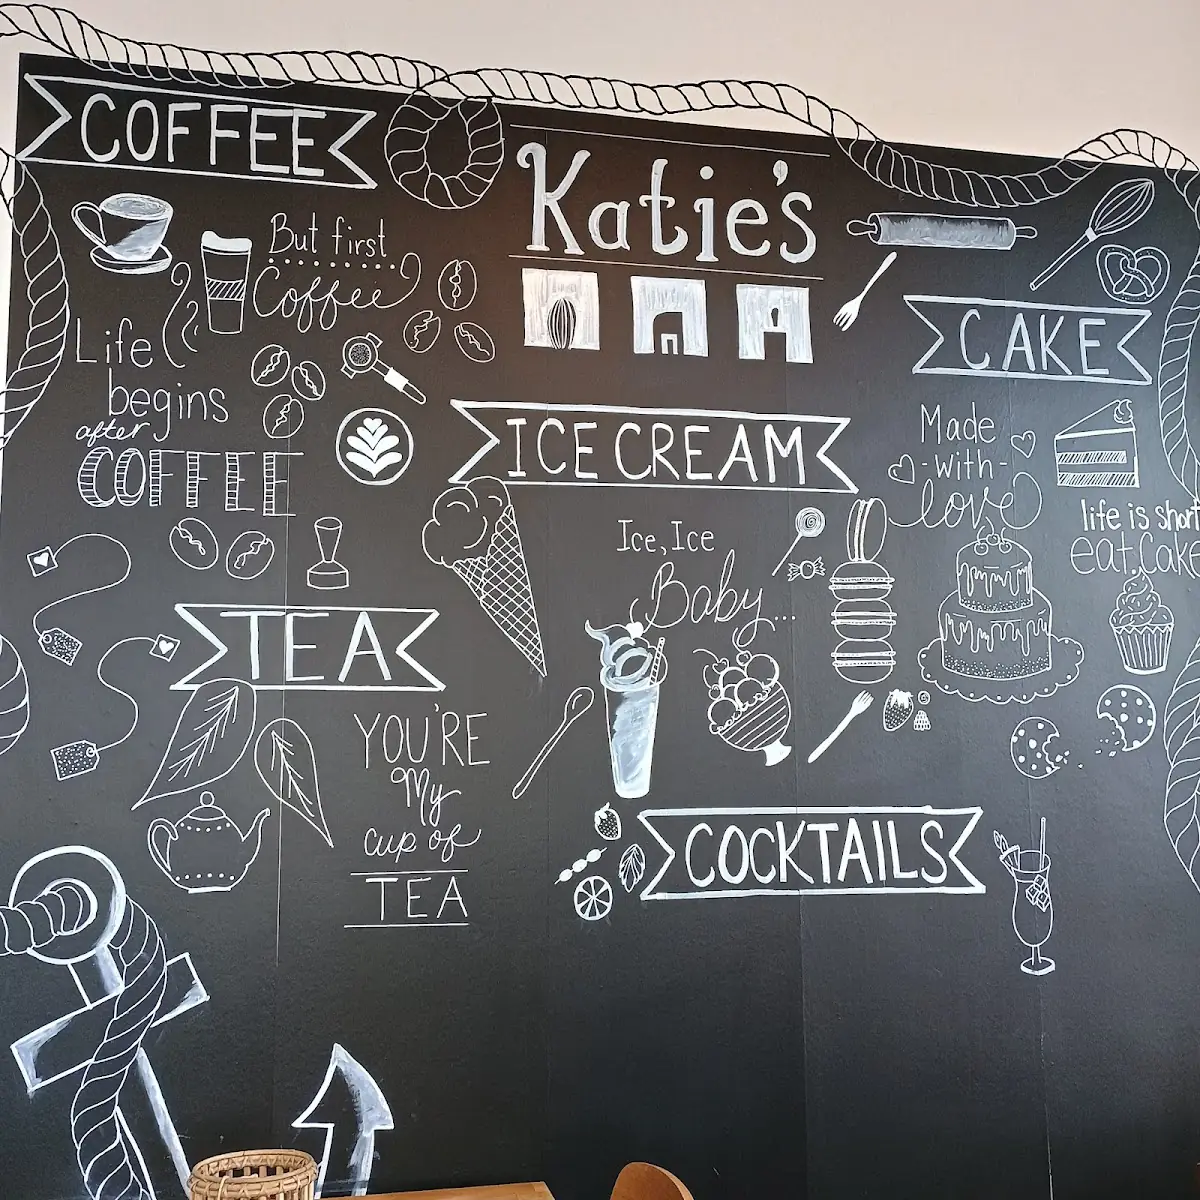 COFFEE
But first
Coffee
Life
begins
after
COFFEE
Katie's
ICE CREAM
Ice, Ice
Baby...
CAKE
Made
-with-
love
life is short
eat Cake
TEA
YOU'RE
My
cup of
TEA
COCKTAILS